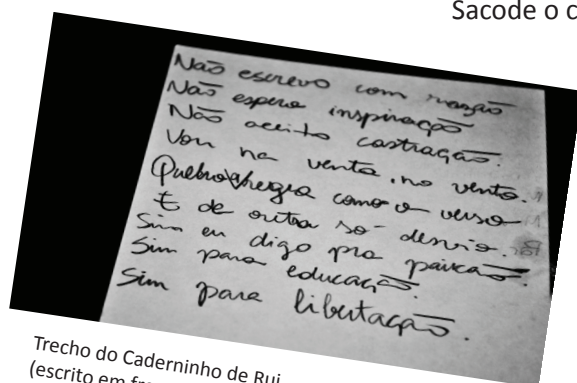 Sacode o c
Não escrevo com razão
Não espero inspiração
Não aceito castração.
Vou na venta, no vento.
Quebro a regra como o verso
E de outra só desvio.
Sim eu digo pra paixão.
Sim para educação.
Sim para libertação.
Trecho do Caderninho de Rui
(escrito em fr